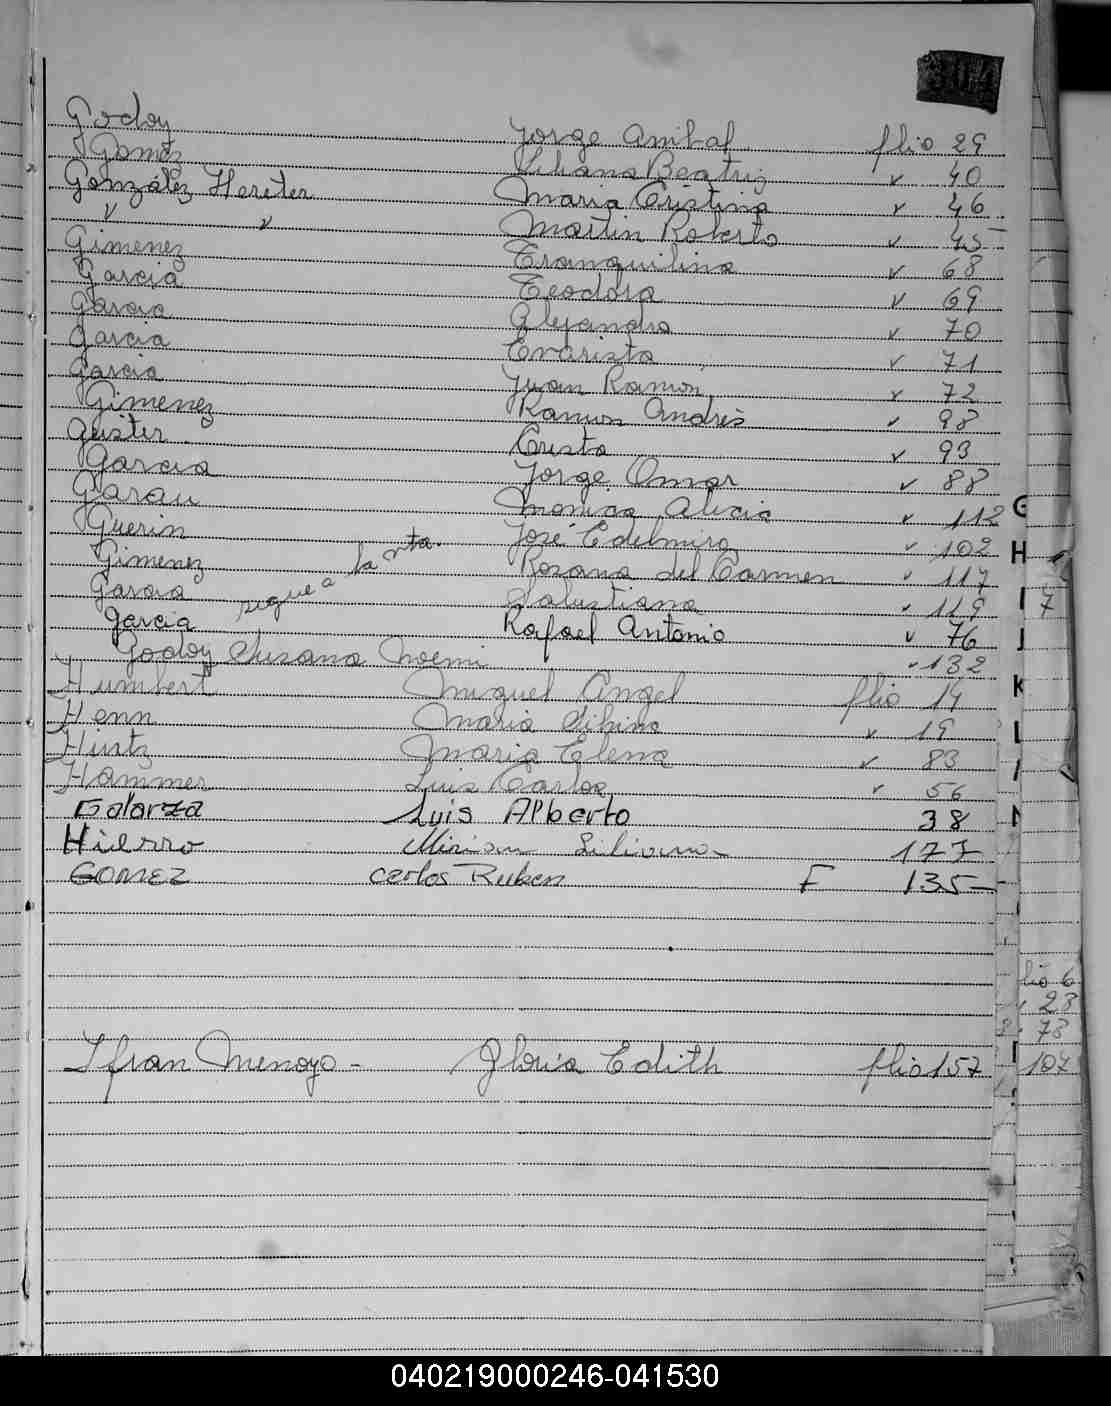 304
Godoy Jorge Anibal flio 29
Gomez Liliana Beatriz v 40
González Hereter Maria Cristina v 46
v v Martin Roberto v 45
Gimenez Tranquilina v 68
Garcia Teodora v 69
Garcia Alejandra v 70
Garcia Evarista v 71
Garcia Juan Ramon v 72
Gimenez Ramon Andrés v 98
Geister Crista v 93
Garcia Jorge Omar v 88
Garau Monica Alicia v 112
Guerin José Edelmiro v 102
Gimenez Rosana del Carmen v 117
Garcia Salustiana v 119
sigue a la vta.
Garcia Rafael Antonio v 76
Godoy Susana Noemi v 132
Humbert Miguel Angel flio 14
Henn Maria Silvina v 19
Hintz Maria Elena v 83
Hammer Luis Carlos v 56
Galarza Luis Alberto 38
Hierro Miriam Liliana 177
GOMEZ Carlos Ruben F 135
Ifran Menoyo - Gloria Edith flio 157
G
H
I 7
J
K
L
lio 6
23
73
107
040219000246-041530